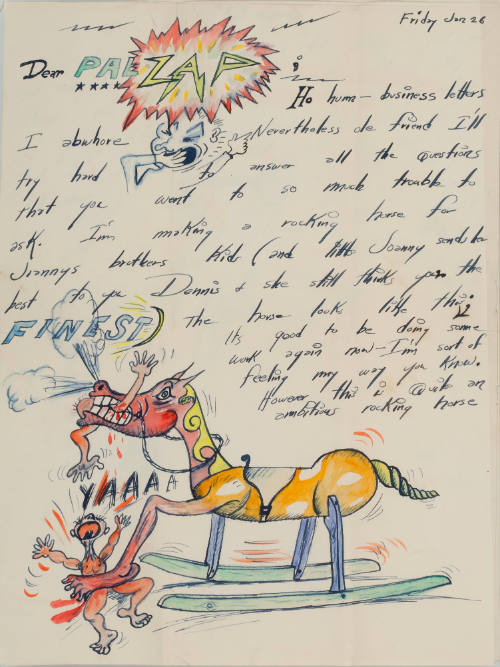 Friday Jan 26
Dear PAL ZAP :
Ho hum — business letters
I abwhore Nevertheless ole friend I'll
try hard to answer all the Questions
that you went to so much trouble to
ask. I'm making a rocking horse for
brothers kids (and little Joanny sends her
best to you Dennis & she still think your the
FINEST) The horse looks like this:
Its good to be doing some
work again now — I'm sort of
feeling my way you know.
However this is Quite an
ambitious rocking horse
YAAAA